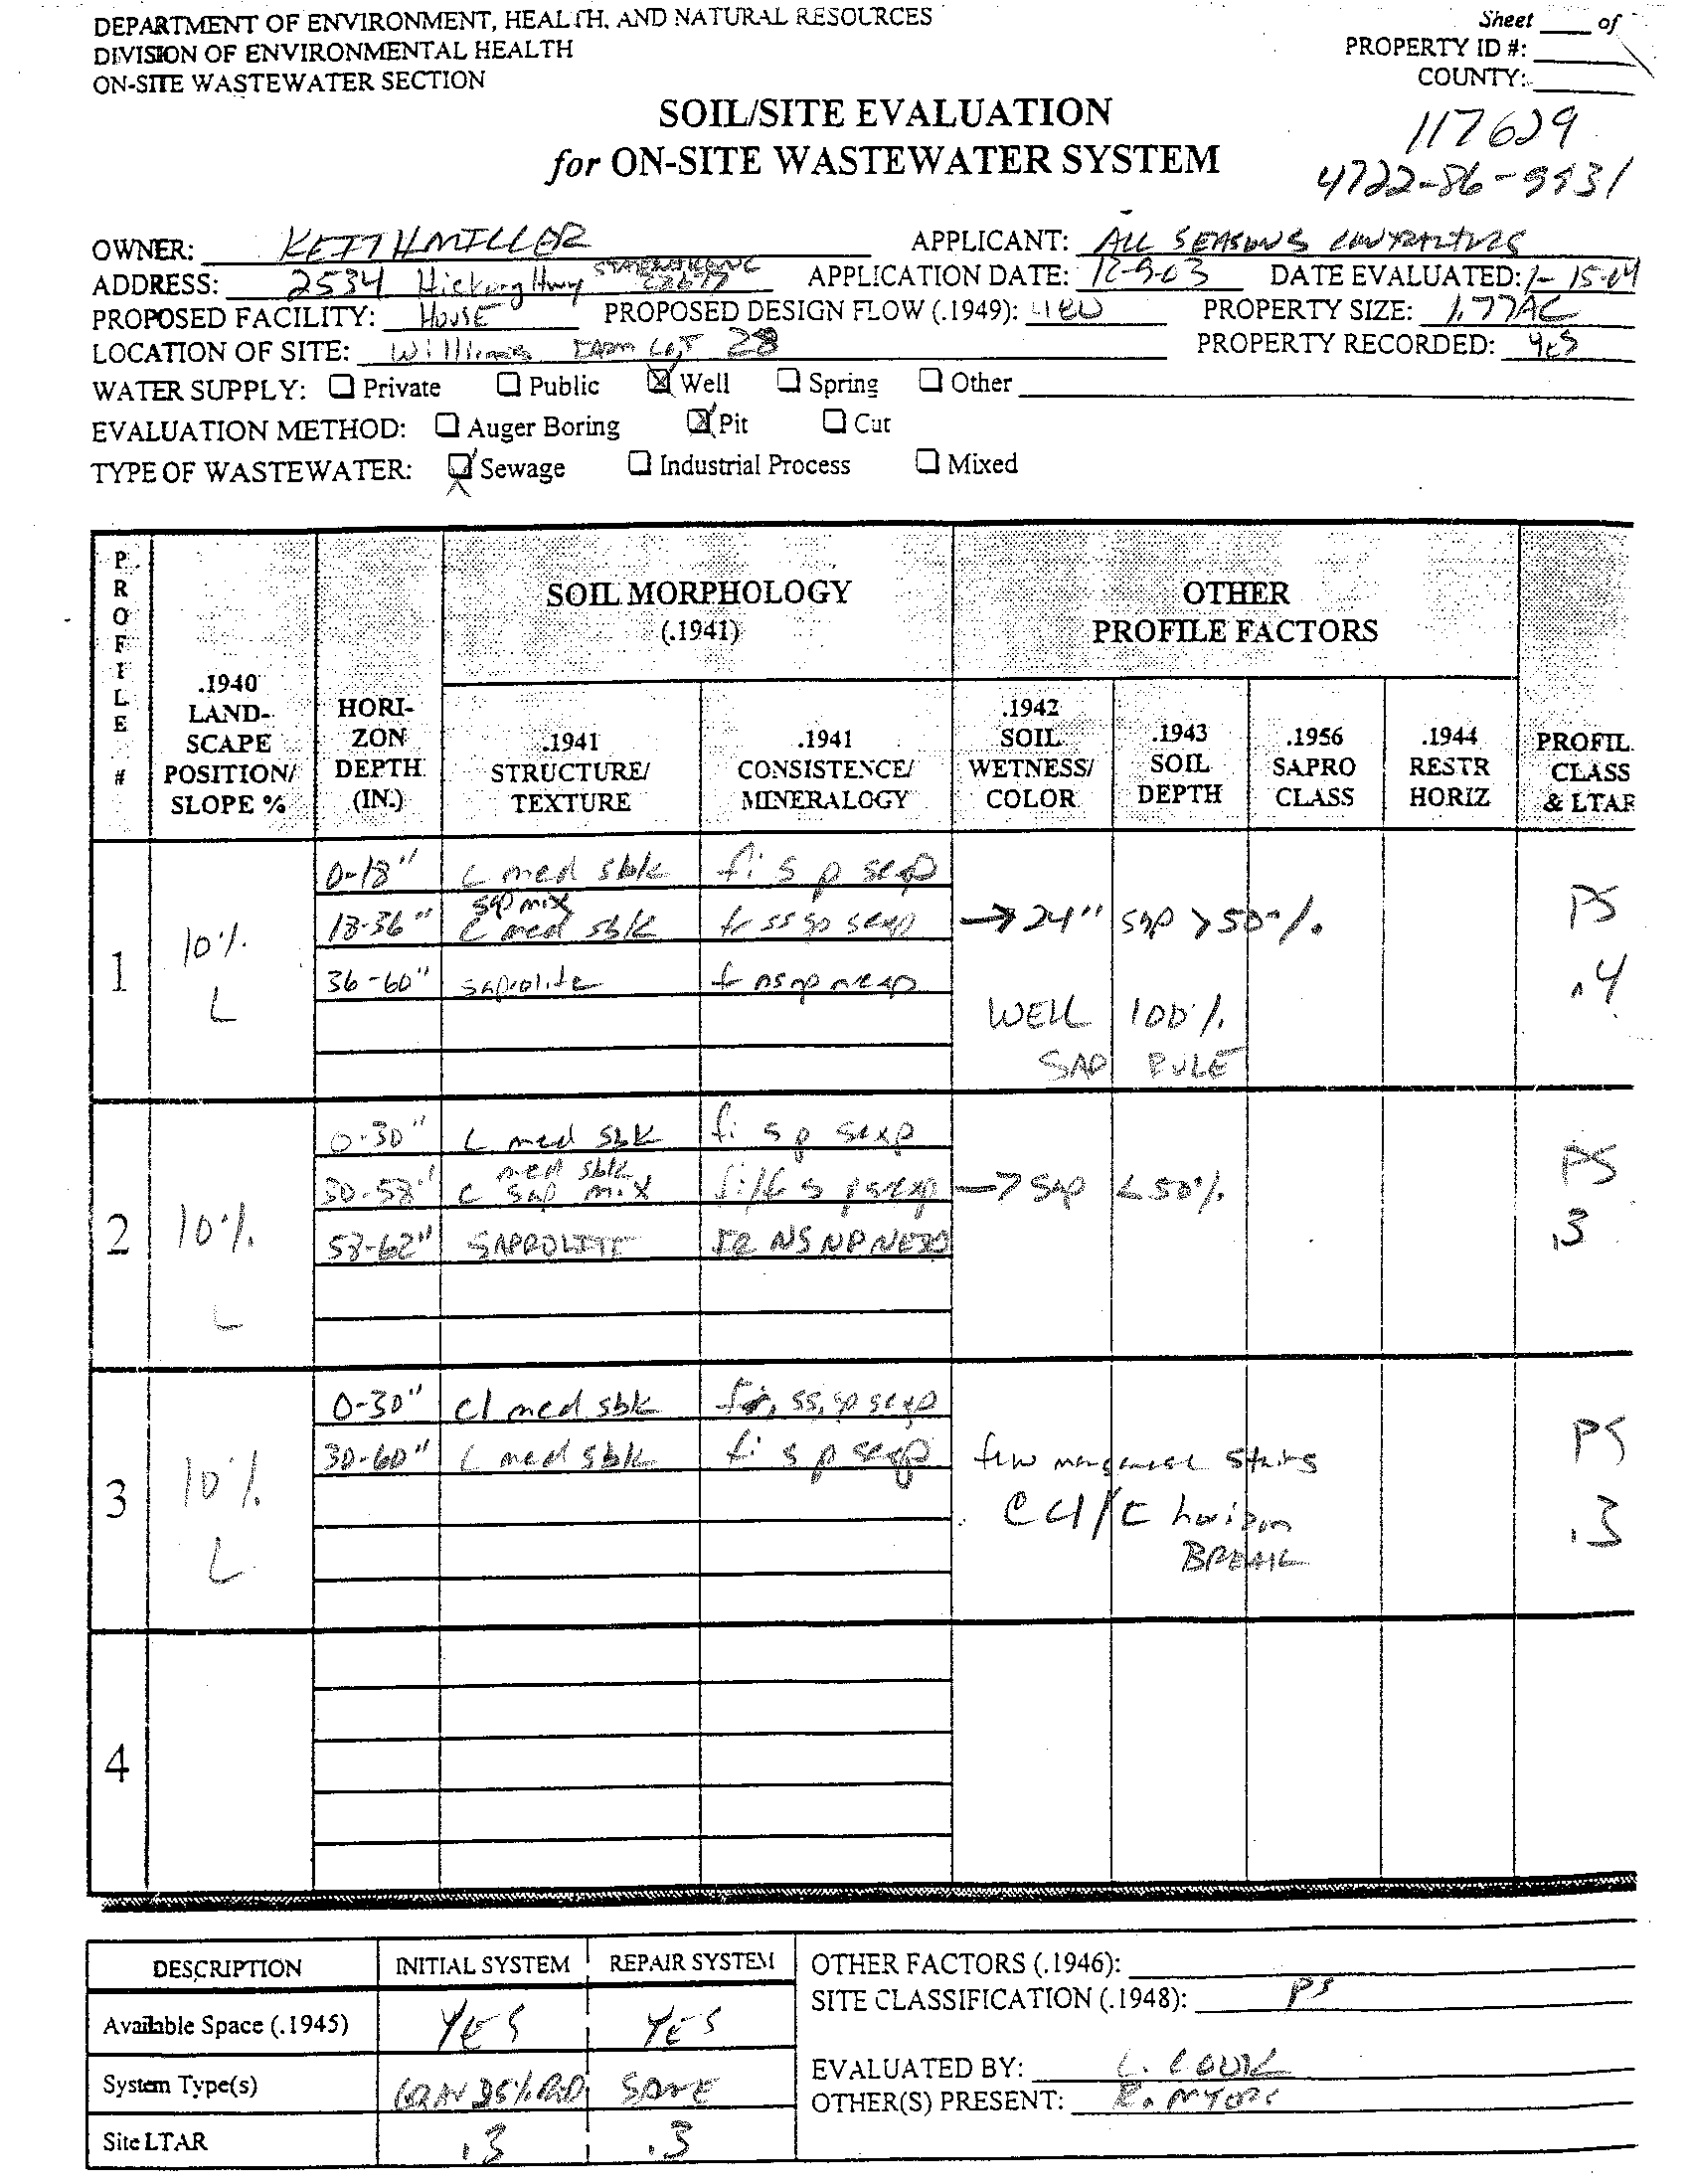 DEPARTMENT OF ENVIRONMENT, HEALTH, AND NATURAL RESOURCES
DIVISION OF ENVIRONMENTAL HEALTH
ON-SITE WASTEWATER SECTION
Sheet ___ of
PROPERTY ID #:
COUNTY:
SOIL/SITE EVALUATION
for ON-SITE WASTEWATER SYSTEM
117629
4722-86-9931
OWNER: KEITH MILLER APPLICANT: ALL SEASONS CONTRACTORS
ADDRESS: 2534 Hickory Hwy STATESVILLE NC 28677 APPLICATION DATE: 12-9-03 DATE EVALUATED: 1-15-04
PROPOSED FACILITY: HOUSE PROPOSED DESIGN FLOW (.1949): 480 PROPERTY SIZE: 1.77AC
LOCATION OF SITE: Williams FARM LOT 28 PROPERTY RECORDED: yes
WATER SUPPLY: Private Public Well Spring Other
EVALUATION METHOD: Auger Boring Pit Cut
TYPE OF WASTEWATER: Sewage Industrial Process Mixed
PROFILE #
.1940 LAND-SCAPE POSITION/ SLOPE %
HORI-ZON DEPTH (IN.)
SOIL MORPHOLOGY (.1941)
.1941 STRUCTURE/ TEXTURE
.1941 CONSISTENCE/ MINERALOGY
OTHER PROFILE FACTORS
.1942 SOIL WETNESS/ COLOR
.1943 SOIL DEPTH
.1956 SAPRO CLASS
.1944 RESTR HORIZ
PROFIL CLASS & LTAR
1 10% L
0-18" C med sbk fi s p sexp
18-36" sap mix C med sbk fr ss sp sexp → 24" sap > 50%
36-60" saprolite fr ns np nexp
WELL 100%
SAP RULE
PS .4
2 10% L
0-30" C med sbk fi s p sexp
30-58" C med sbk sap mix fi/fr s p sexp → sap < 50%
58-62" SAPROLITE FR NS NP NEXP
PS .3
3 10% L
0-30" cl med sbk fr, ss, sp sexp
30-60" C med sbk fi s p sexp
few manganese stains
@ cl/C horizon
BREAK
PS .3
4
DESCRIPTION INITIAL SYSTEM REPAIR SYSTEM
Available Space (.1945) YES YES
System Type(s) GRAV 25% RED SAME
Site LTAR .3 .3
OTHER FACTORS (.1946):
SITE CLASSIFICATION (.1948): PS
EVALUATED BY: L. COOK
OTHER(S) PRESENT: R. MYERS